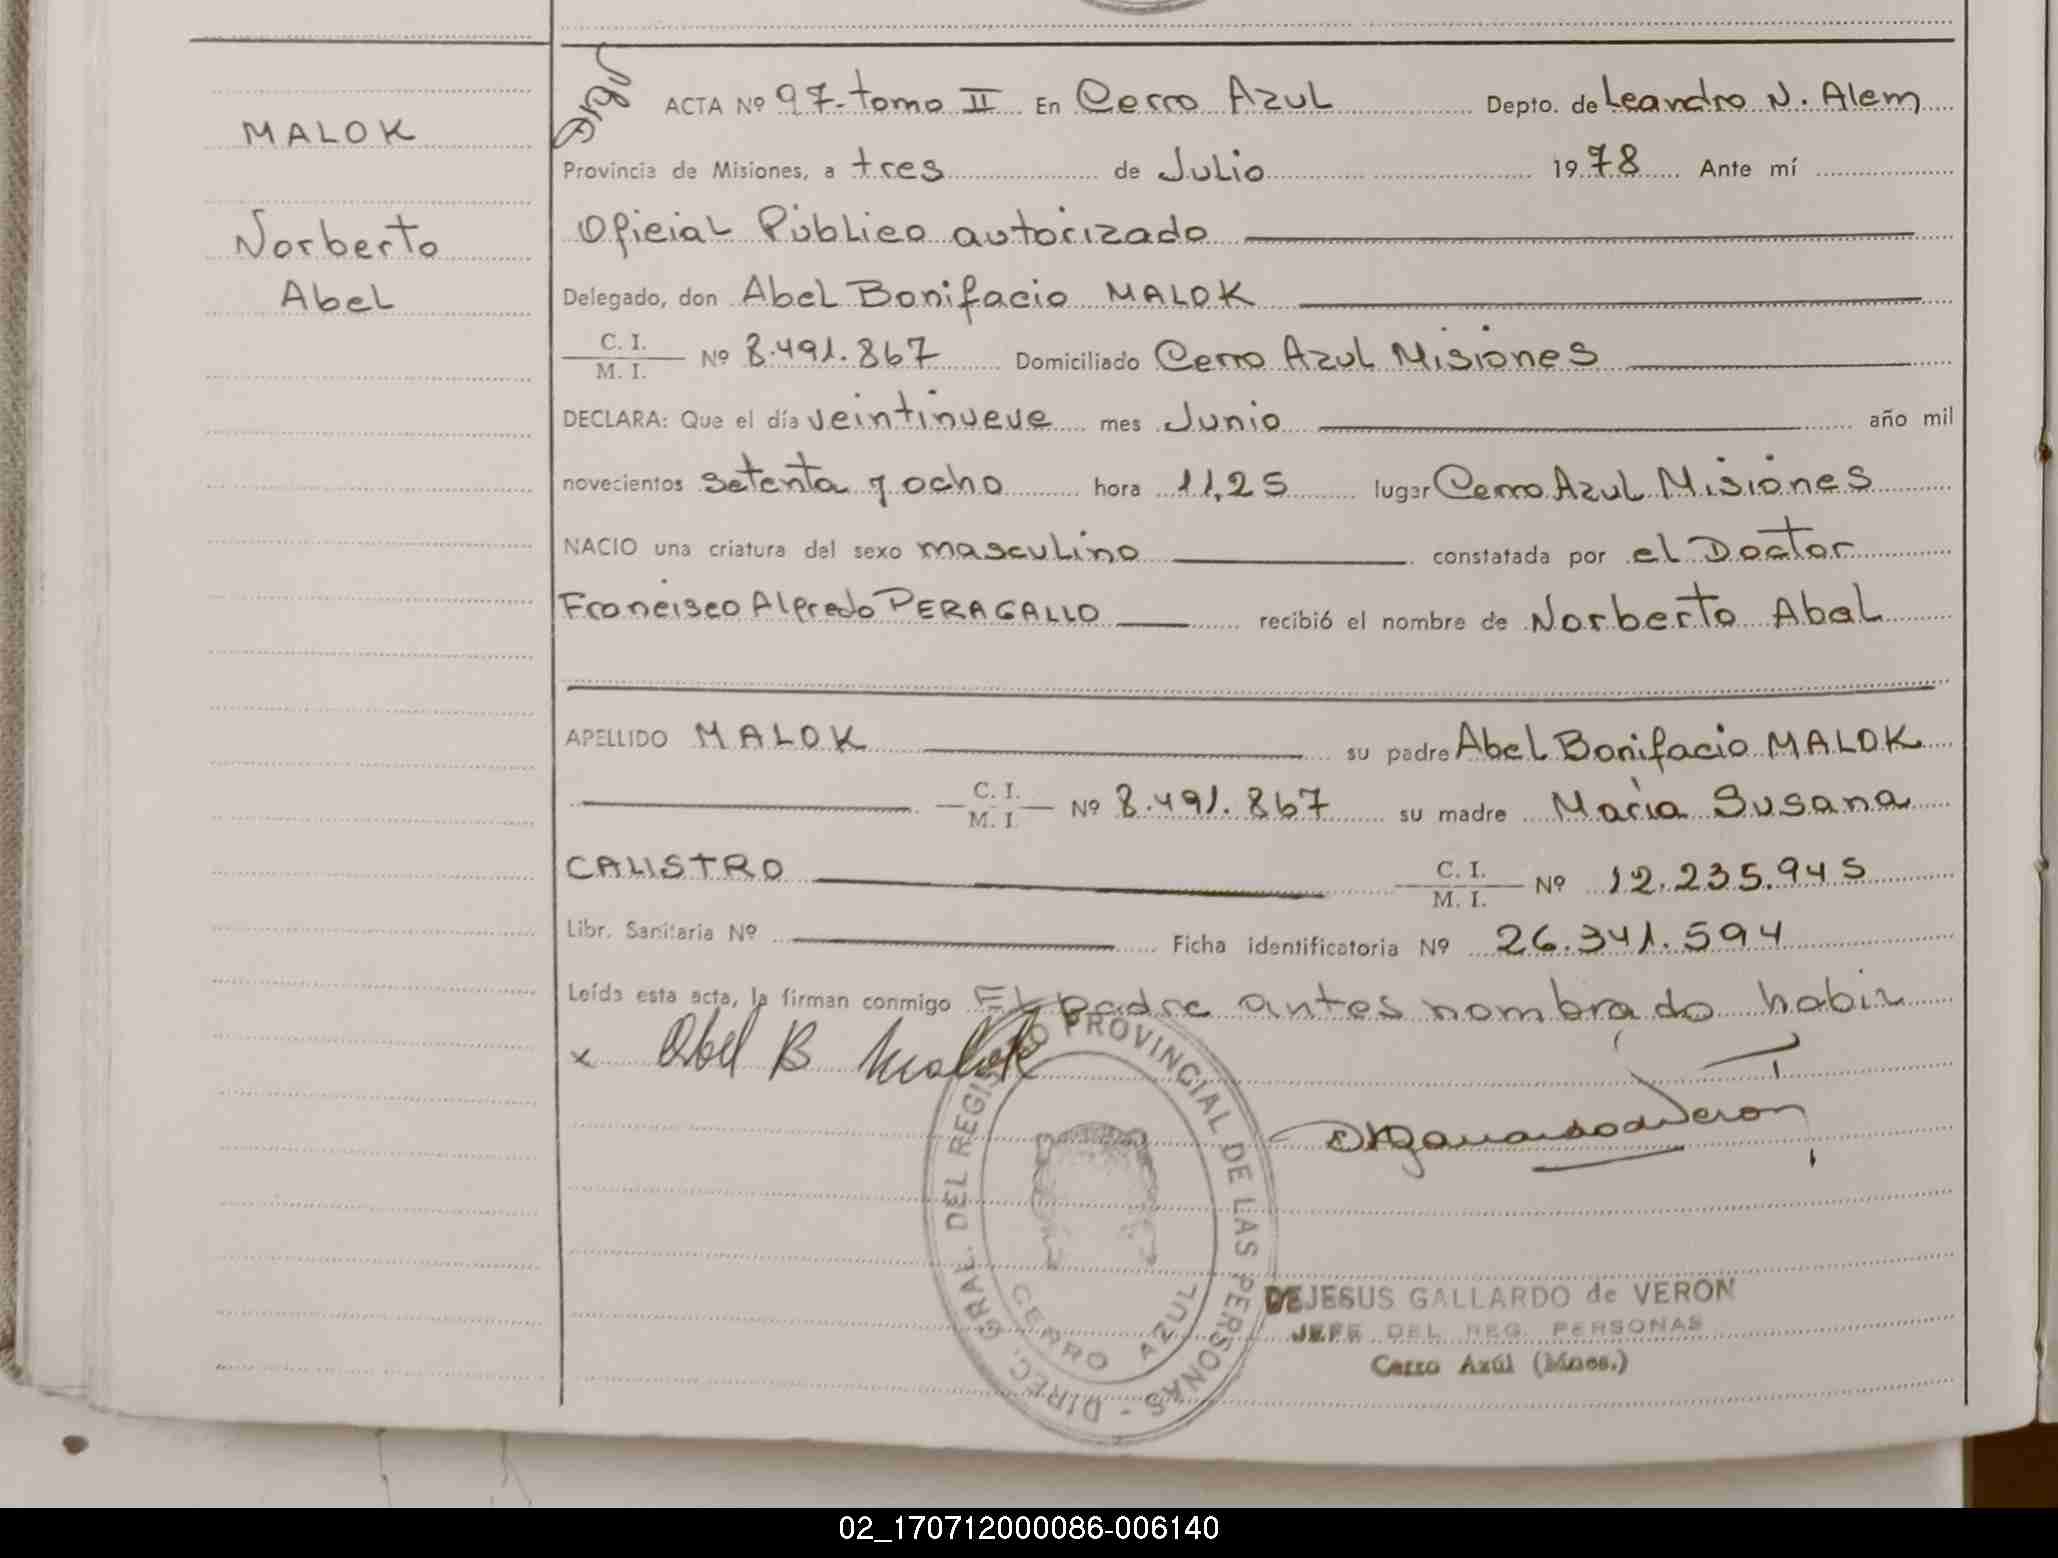 MALOK
Norberto
Abel
ACTA Nº 97-tomo II En Cerro Azul Depto. de Leandro N. Alem
Provincia de Misiones, a tres de Julio 1978 Ante mí
Oficial Público autorizado
Delegado, don Abel Bonifacio MALOK
C. I.
M. I. Nº 8.491.867 Domiciliado Cerro Azul Misiones
DECLARA: Que el día veintinueve mes Junio año mil
novecientos setenta y ocho hora 11,25 lugar Cerro Azul Misiones
NACIO una criatura del sexo masculino constatada por el Doctor
Francisco Alfredo PERAGALLO recibió el nombre de Norberto Abel
APELLIDO MALOK su padre Abel Bonifacio MALOK
C. I.
M. I. Nº 8.491.867 su madre María Susana
CALISTRO C. I.
M. I. Nº 12.235.945
Libr. Sanitaria Nº Ficha identificatoria Nº 26.341.594
Leída esta acta, la firman conmigo El padre antes nombrado habil
x Abel B Malok
DIREC. GRAL. DEL REGISTRO PROVINCIAL DE LAS PERSONAS -
CERRO AZUL
DEJESUS GALLARDO de VERON
JEFE DEL REG. PERSONAS
Cerro Azúl (Mnes.)
02_170712000086-006140